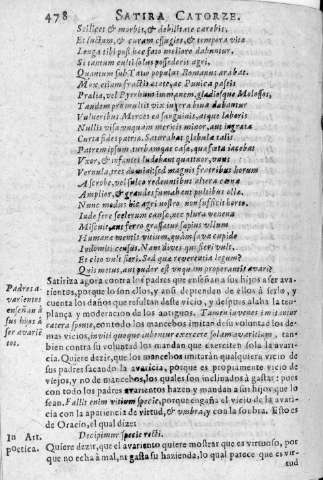 478 SATIRA CATORZE.
Scilicet & morbis, & debilitate carebis,
Et luctum, & curam effugies, & tempora vitæ
Longa tibi post hæc fato meliore dabuntur.
Si tantum culti solus possederis agri,
Quantum sub Tatio populus Romanus arabat.
Mox etiam fractis ætate, ac Punica passis
Prælia, vel Pyrrhum immanem, gladiosque Molossos,
Tandem pro multis vix iugera bina dabantur
Vulneribus Merces ea sanguinis, atque laboris
Nullis visa vnquam meritis minor, aut ingrata
Curta fides patriæ. Saturabat glebula talis
Patrem ipsum turbamque casæ, qua fœta iacebat
Vxor, & infantes ludebant quattuor, vnus
Vernula, tres domini: sed magnis fratribus horum
A scrobe, vel sulco redeuntibus altera cœna
Amplior, & grandes fumabant pultibus ollæ.
Nunc modus hic agri nostro non sufficit horto.
Inde fere scelerum causæ, nec plura venena
Miscuit, aut ferro grassatur sæpius vllum
Humanæ mentis vitium, quàm sæua cupido
Indomiti census. Nam diues qui fieri vult,
Et cito vult fieri. Sed quæ reuerentia legum?
Quis metus, aut pudor est vnquam properantis auari?
Padres a-
varientos
enseñan à
sus hijos à
ser avariẽ
tos.
Satiriza agora contra los padres que enseñan a sus hijos a ser ava
rientos, porque lo son ellos, y assi dependan de ellos à serlo, y
cuenta los daños que resultan deste vicio, y despues alaba la tem-
plança y moderacion de los antiguos. Tamen iuvenes imitãtur
cætera sponte, con todo los mancebos imitan de su voluntad los de-
mas vicios, inviti quoque iubentur exercere solam avaritiam, tan-
bien contra su voluntad los mandan que exerciten sola la avari-
cia. Quiere dezir, que los mancebos imitarán qualquiera vicio de
sus padres sacando la avaricia, porque es propiamente vicio de
viejos, y no de mancebos, los quales son inclinados à gastar: pero
con todo los padres avarientos hazen y mandan a sus hijos que lo
sean. Fallit enim vitium specie, porque engaña el vicio de la avari-
cia con la apariencia de virtud, & umbra, y con la sombra. Esto es
de Oracio, el qual dize:
In Art.
poetica.
Decipimur specie recti.
Quiere dezir, que el avariento quiere mostrar que es virtuoso, por
que no echa à mal, ni gasta su hazienda, lo qual parece que es vir-
tud